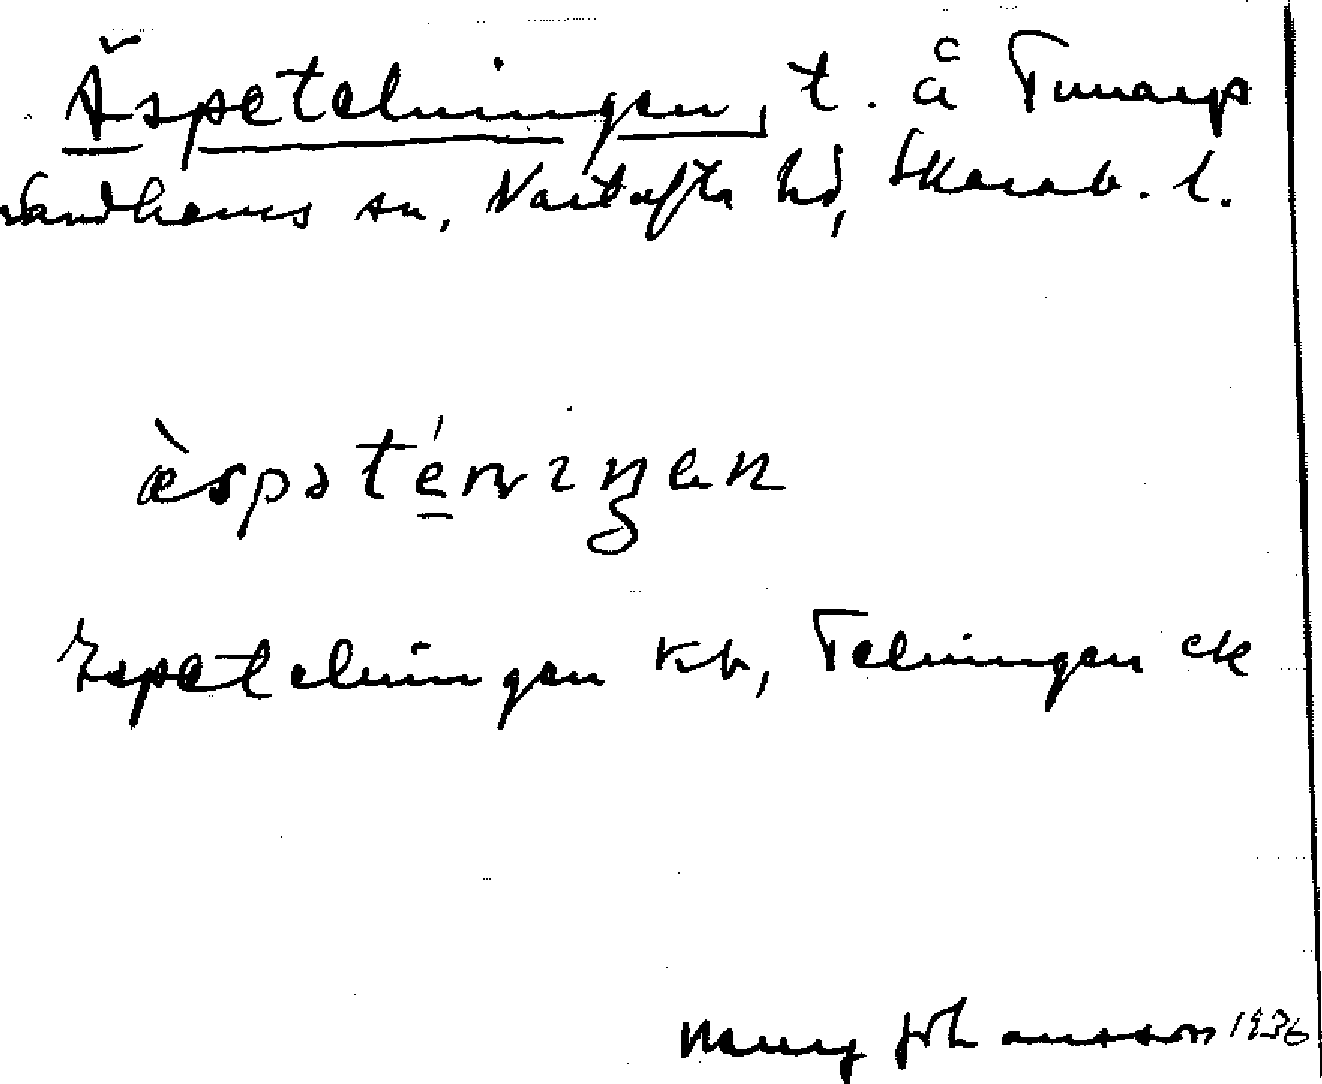 Äspetelningen, t. å Tunarp
Sandhems sn, Vartofta hd, Skarab. l.
æ̀spəté̱rnɪŋen
Espetelningen kb, Telningen ek
Nanny Johansson 1936